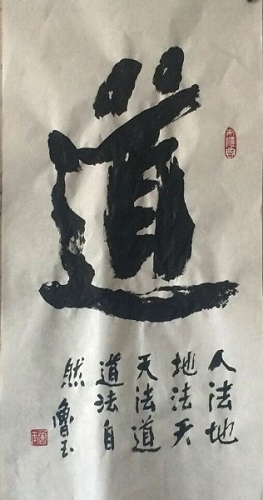 道
人法地
地法天
天法道
道法自
然 魯玉